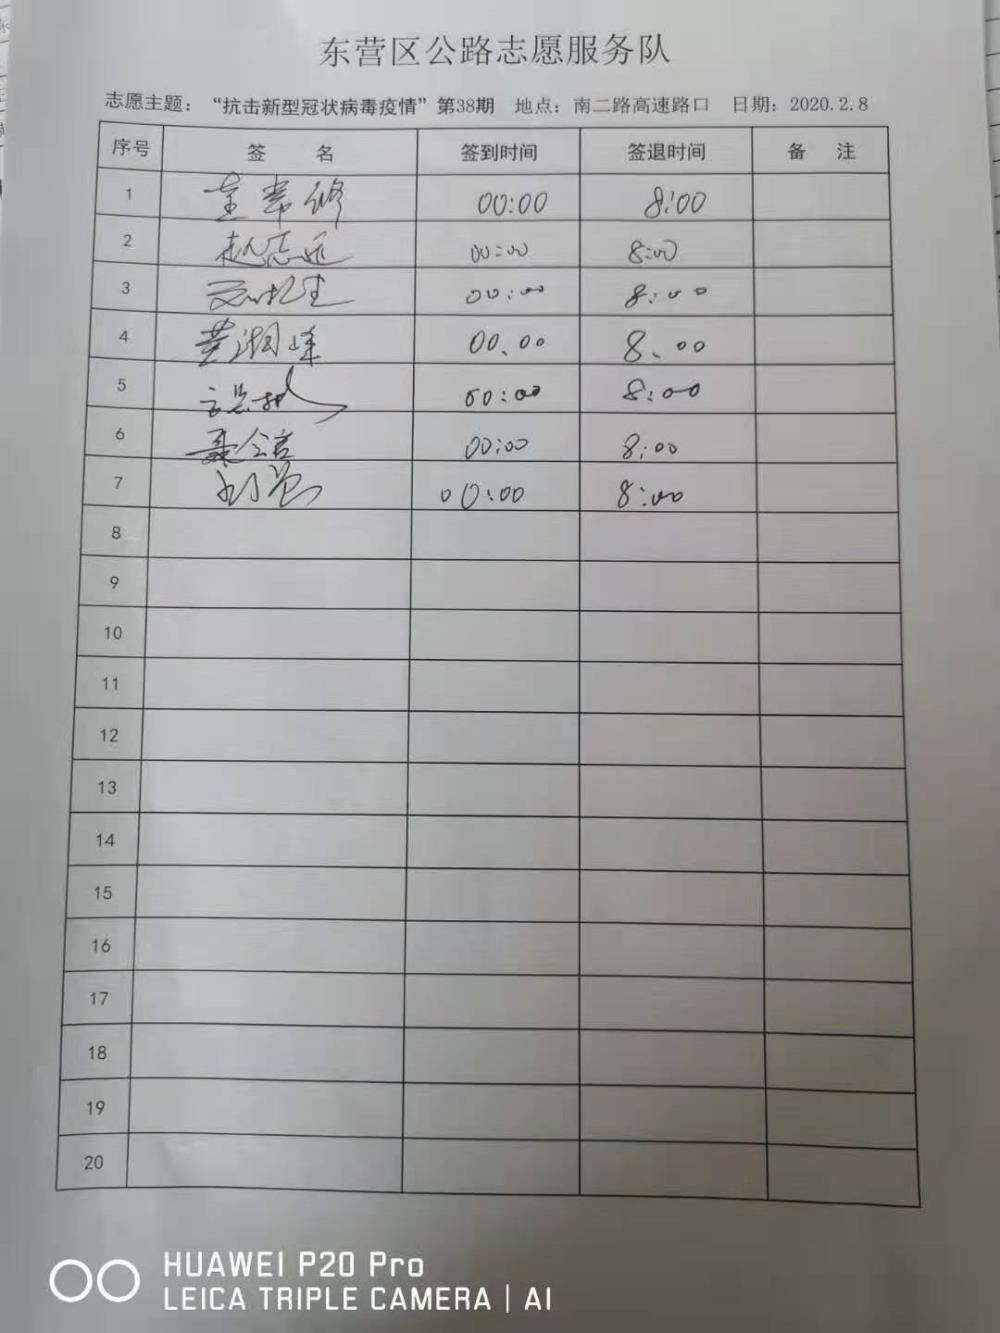 东营区公路志愿服务队
志愿主题：“抗击新型冠状病毒疫情”第38期 地点：南二路高速路口 日期：2020.2.8
序号 签 名 签到时间 签退时间 备 注
1 00:00 8:00
2 赵志远 00:00 8:00
3 00:00 8:00
4 黄湖峰 00.00 8.00
5 00:00 8:00
6 00:00 8:00
7 00:00 8:00
8
9
10
11
12
13
14
15
16
17
18
19
20
HUAWEI P20 Pro
LEICA TRIPLE CAMERA | AI